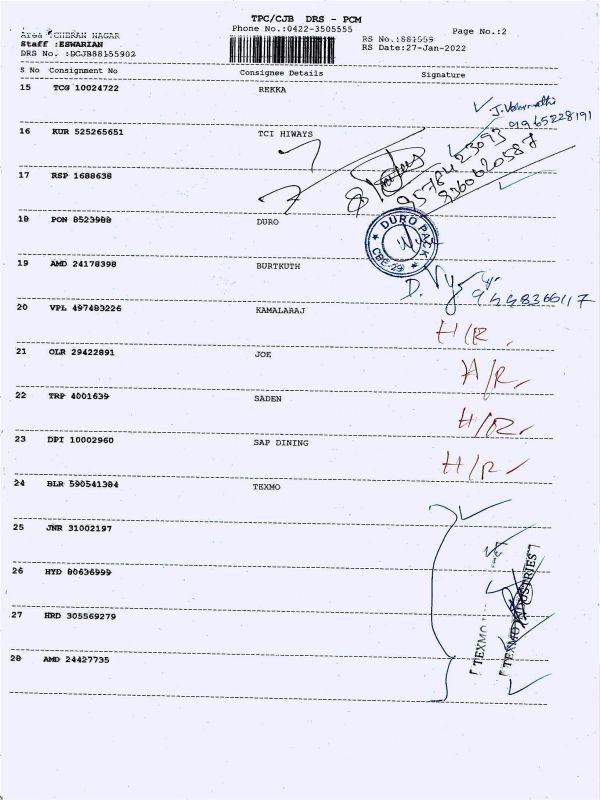 TPC/CJB DRS - PCM
Phone No.:0422-3505555
Page No.:2
Area :CHERAN NAGAR
Staff :ESWARIAN
DRS No. :DCJB88155902
RS No.:881559
RS Date:27-Jan-2022
S No Consignment No Consignee Details Signature
15 TCG 10024722 REKKA
9965228191
16 KUR 525265651 TCI HIWAYS
17 RSP 1688638
18 PON 8523988 DURO
DURO PACK
19 AMD 24178398 BURTKUTH
20 VPL 497483226 KAMALARAJ
H/R
21 OLR 29422891 JOE
H/R
22 TRP 4001639 SADEN
H/R
23 DPI 10002960 SAP DINING
H/R
24 BLR 590541384 TEXMO
25 JNR 31002197
26 HYD 80636999
27 HRD 305569279
28 AMD 24427735
TEXMO
TEXMO INDUSTRIES